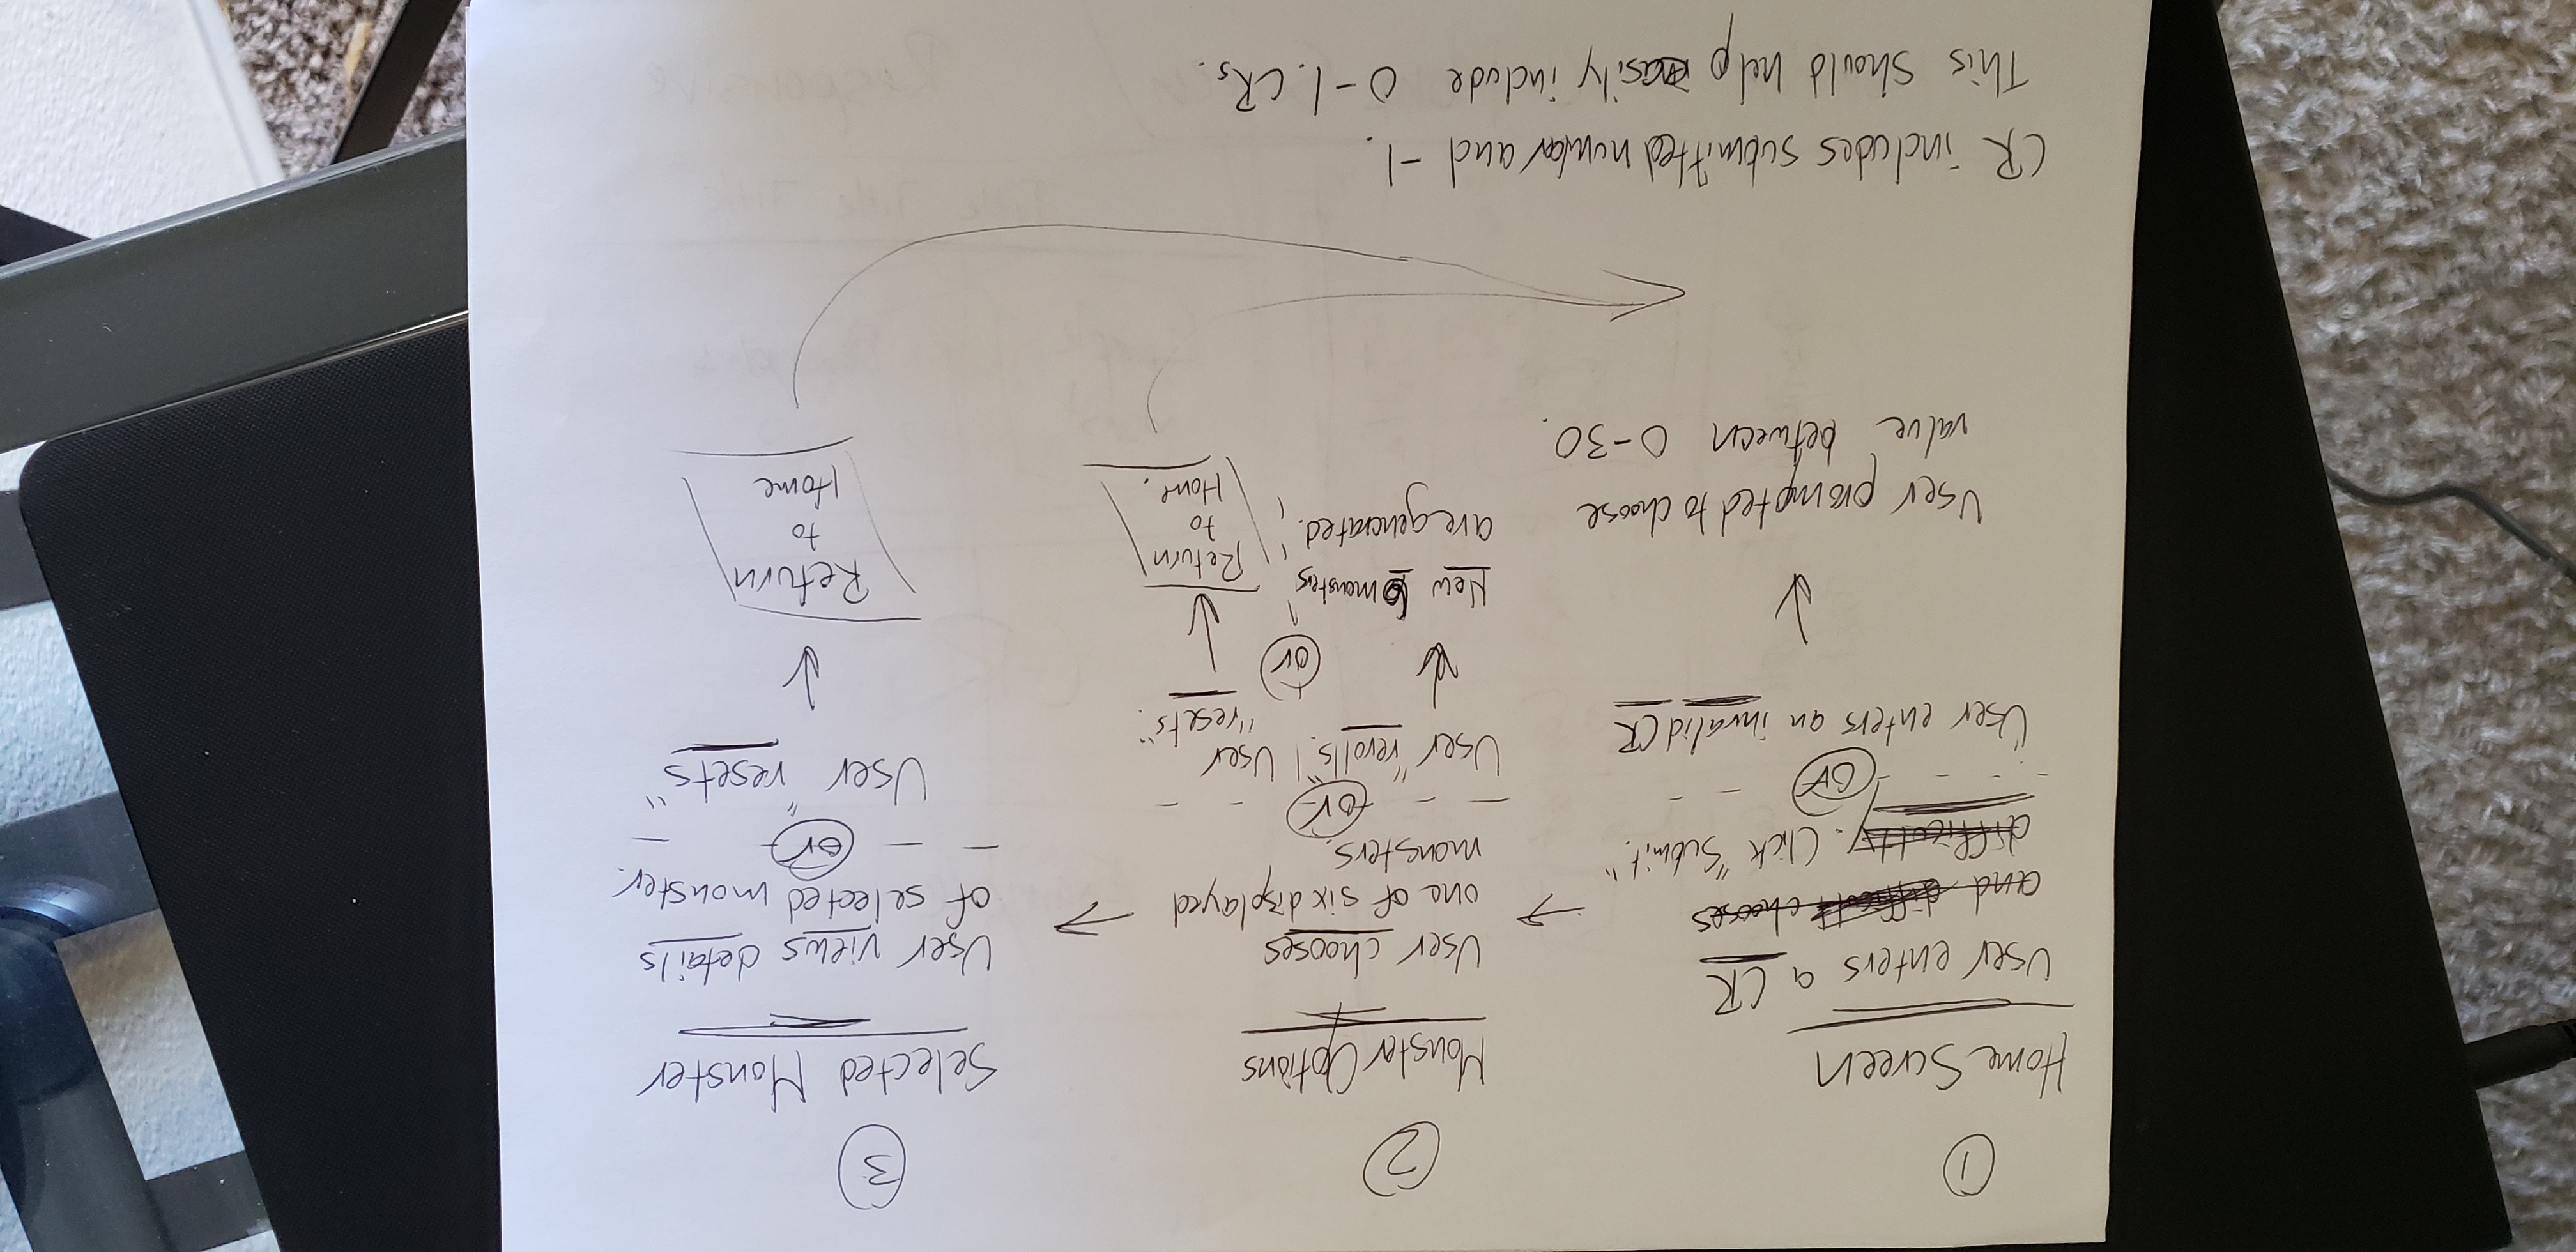 1
Home Screen
User enters a CR
and difficult chooses
difficulty. Click "Submit."
or
User enters an invalid CR
User prompted to choose
value between 0-30.
2
Monster Options
User chooses
one of six displayed
monsters.
or
User "rerolls".
New 6 monsters
are generated.
or
User
"resets".
Return
to
Home.
3
Selected Monster
User views details
of selected monster.
or
User "resets"
Return
to
Home
CR includes submitted number and -1.
This should help easily include 0-1. CRs.